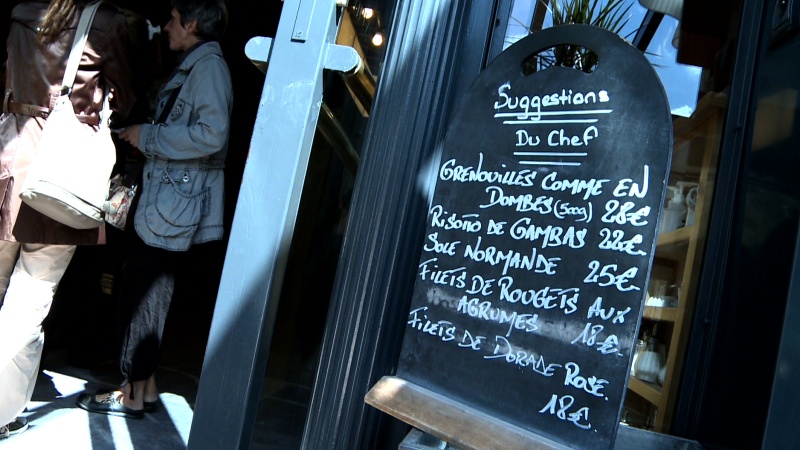 Suggestions
Du Chef
GRENOUILLES COMME EN
DOMBES (500g) 28€
RISOTO DE GAMBAS 22€.
SOLE NORMANDE 25€
FILETS DE ROUGETS AUX
AGRUMES 18€.
FILETS DE DORADE ROSE.
18€.